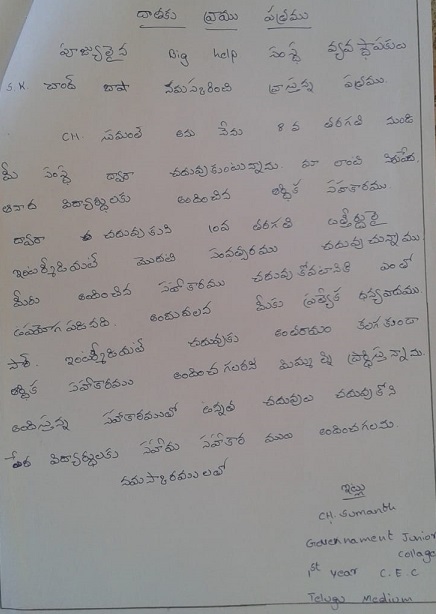 దాతకు వ్రాయు పత్రము
పూజ్యులైన Big help సంస్థ వ్యవస్థాపకులు
S.K. చాంద్ బాషా నమస్కరించి వ్రాస్తున్న పత్రము.
CH. సుమంత్ అను నేను 8 వ తరగతి నుండి
మీ సంస్థ ద్వారా చదువుకుంటున్నాను. మా లాంటి నిరుపేద
అనాథ విద్యార్థులకు అందించిన ఆర్థిక సహకారము
ద్వారా చదువుకుని 10వ తరగతి ఉత్తీర్ణులై
ఇంటర్మీడియట్ మొదటి సంవత్సరము చదువుచున్నాము
మీరు అందించిన సహాకారము చదువుకోవటానికి ఎంతో
ఉపయోగపడినది. అందువలన మీకు ప్రత్యేక ధన్యవాదము
సార్. ఇంటర్మీడియట్ చదువుకు అంతరాయం కలగకుండా
ఆర్థిక సహాకారము అందించగలరని మిమ్మల్ని ప్రార్థిస్తున్నాను.
అందిస్తున్న సహాకారముతో ఉన్నత చదువులు చదువుకోని
తోటి విద్యార్థులకు సహాకారములు అందించగలను
నమస్కారములతో
ఇట్లు
CH. Sumanth
Governament Junior
collage
1st year C.E.C
Telugu Medium